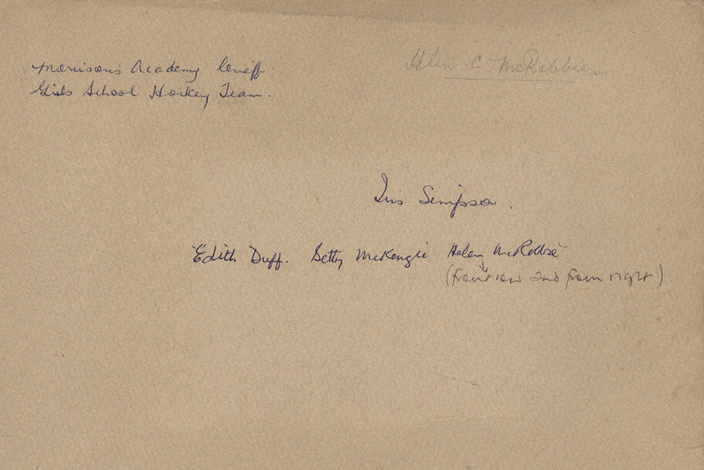 Morrison's Academy Crieff
Girls School Hockey Team.
Helen C. McRobbie
Iris Simpson.
Edith Duff. Betty McKenzie Helen McRobbie
(front row 2nd from right)